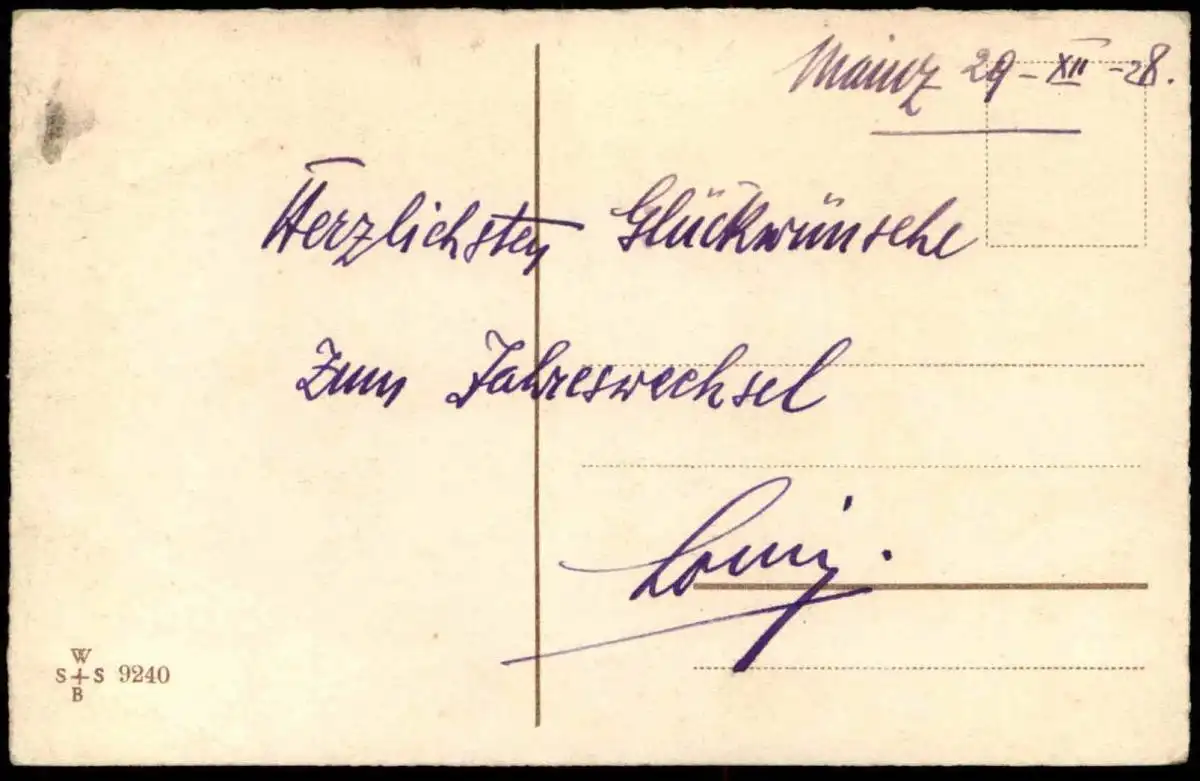 Mainz 29-XII-28.
Herzlichsten Glückwünsche
zum Jahreswechsel
W
S+S 9240
B